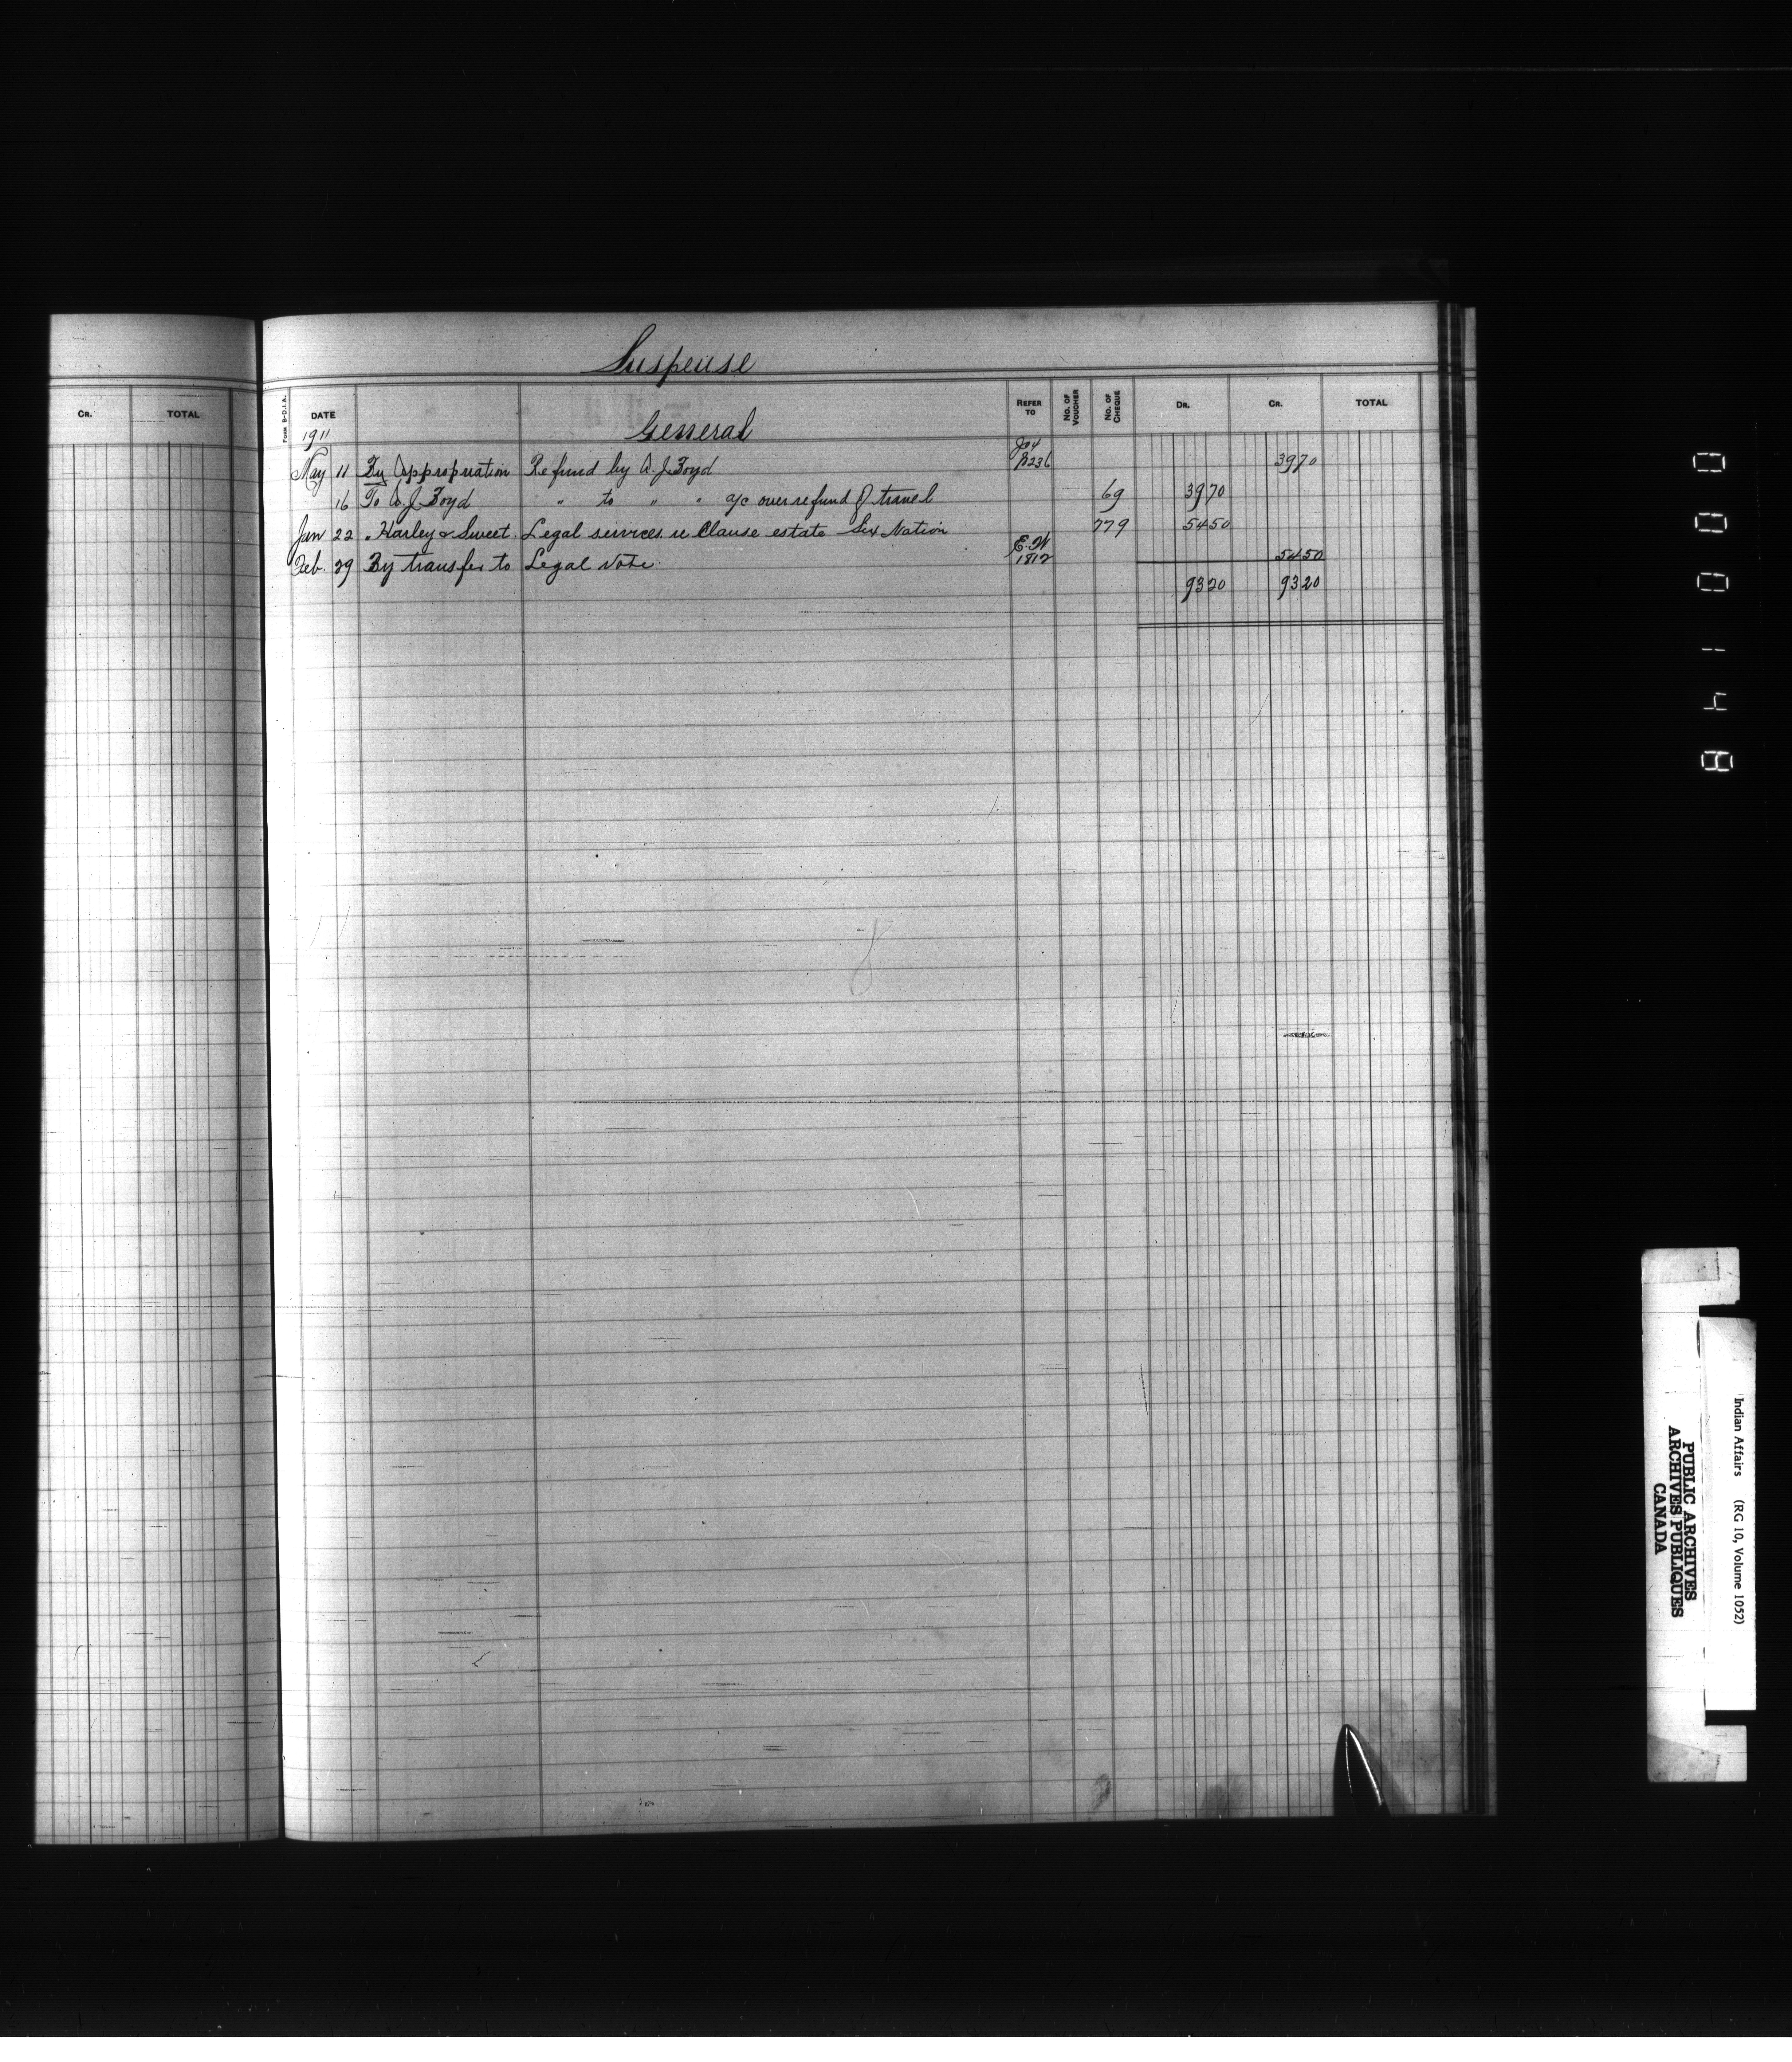 Suspense
CR. TOTAL
FORM B-D.I.A. DATE REFER TO No. OF VOUCHER No. OF CHEQUE DR. CR. TOTAL
1911 General
May 11 By Appropriation Refund by A. J. Boyd Jo 4 B236 3970
16 To A. J. Boyd " to " " a/c over refund of travel 69 3970
Jan 22 " Harley & Sweet. Legal services re Clause estate Six Nation 779 5450
Feb. 29 By transfer to Legal Vote. E.W 1812 5450
9320 9320
000148
Indian Affairs (RG 10, Volume 1052)
PUBLIC ARCHIVES
ARCHIVES PUBLIQUES
CANADA